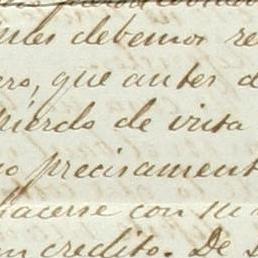 debemos re
ero, que antes d
uierdo de vista
no precisament
hacerse con su
un credito. De